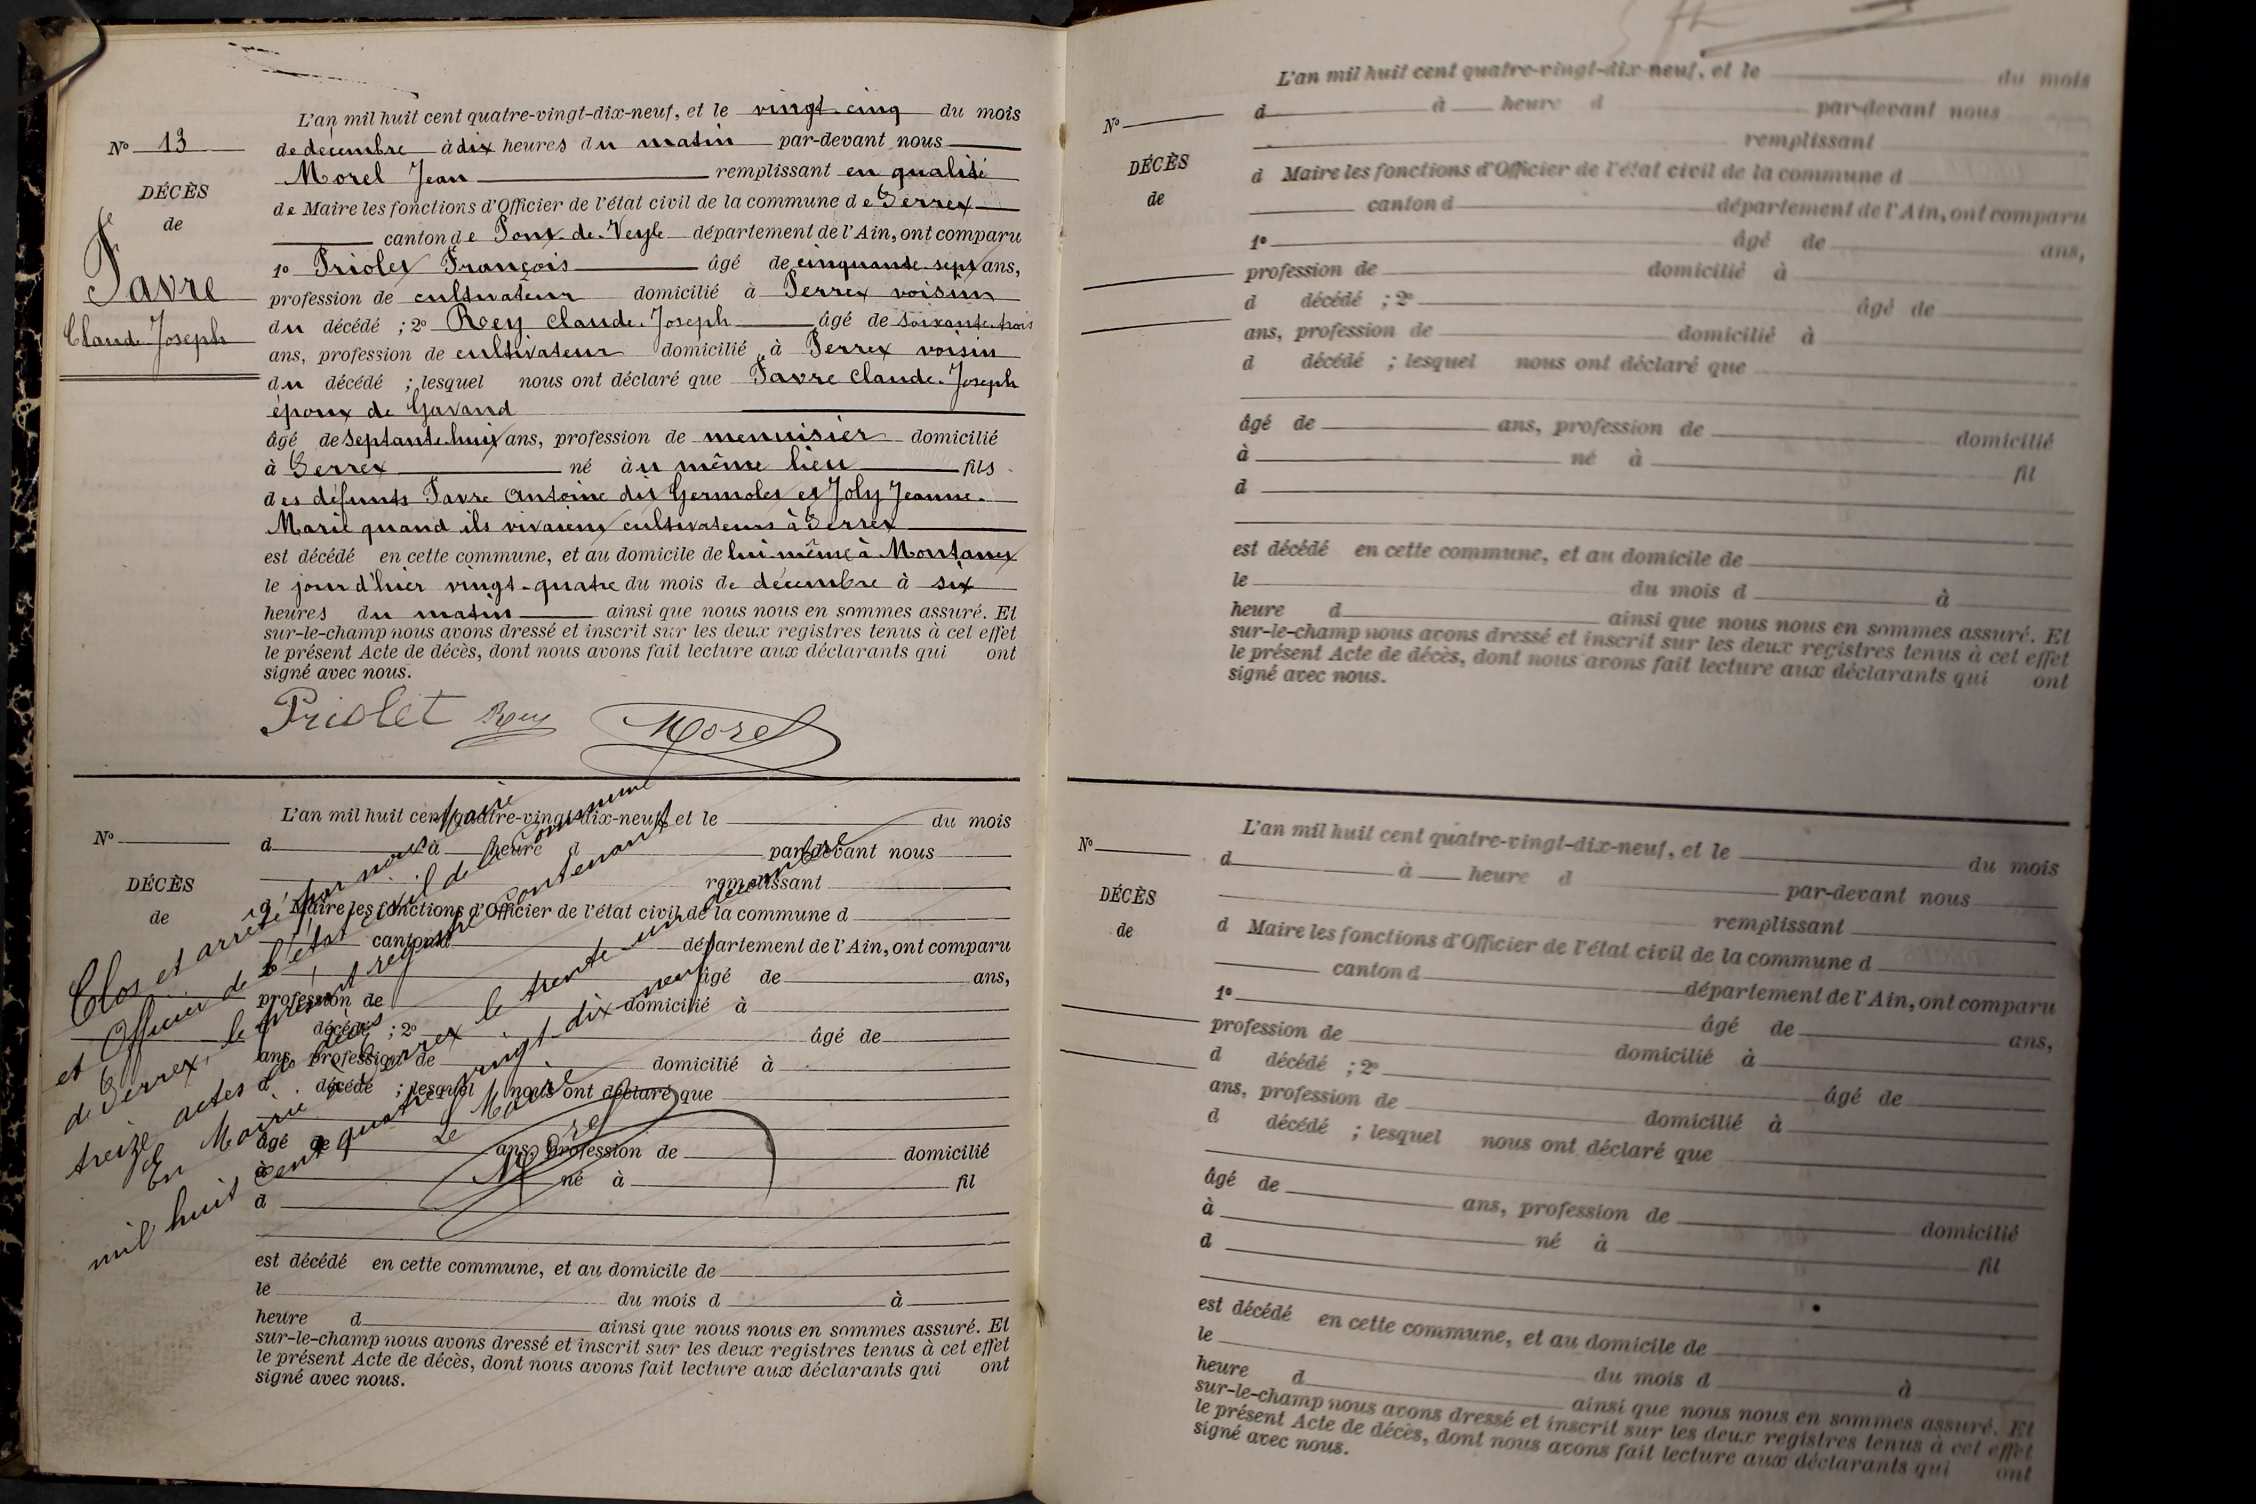 L'an mil huit cent quatre-vingt-dix-neuf, et le vingt-cinq du mois
No 13
de décembre à dix heures du matin par-devant nous
Morel Jean remplissant en qualité
DÉCÈS
de Maire les fonctions d'Officier de l'état civil de la commune de Perrex
de
canton de Pont-de-Veyle département de l'Ain, ont comparu
Favre
Claude Joseph
1o Priolet François âgé de cinquante-sept ans,
profession de cultivateur domicilié à Perrex voisin
du décédé ; 2o Rey Claude-Joseph âgé de soixante-trois
ans, profession de cultivateur domicilié à Perrex voisin
du décédé ; lesquel nous ont déclaré que Favre Claude-Joseph
époux de Gavand
âgé de septante-huit ans, profession de menuisier domicilié
à Perrex né au même lieu fils
des défunts Favre Antoine dit Germolet et Joly Jeanne-
Marie quand ils vivaient cultivateurs à Perrex
est décédé en cette commune, et au domicile de lui-même à Montanay
le jour d'hier vingt-quatre du mois de décembre à six
heures du matin ainsi que nous nous en sommes assuré. Et
sur-le-champ nous avons dressé et inscrit sur les deux registres tenus à cet effet
le présent Acte de décès, dont nous avons fait lecture aux déclarants qui ont
signé avec nous.
Priolet Rey Morel
L'an mil huit cent quatre-vingt-dix-neuf, et le du mois
No
d à heure d par-devant nous
remplissant
DÉCÈS
de
d Maire les fonctions d'Officier de l'état civil de la commune d
canton d département de l'Ain, ont comparu
1o âgé de ans,
profession de domicilié à
d décédé ; 2o âgé de
ans, profession de domicilié à
d décédé ; lesquel nous ont déclaré que
âgé de ans, profession de domicilié
à né à fil
d
est décédé en cette commune, et au domicile de
le du mois d à
heure d ainsi que nous nous en sommes assuré. Et
sur-le-champ nous avons dressé et inscrit sur les deux registres tenus à cet effet
le présent Acte de décès, dont nous avons fait lecture aux déclarants qui ont
signé avec nous.
Clos et arrêté par nous Maire
et Officier de l'état civil de la commune
de Perrex, le présent registre contenant
treize actes de décès
En Mairie à Perrex le trente un décembre
mil huit cent quatre vingt dix neuf
Le Maire
Morel
L'an mil huit cent quatre-vingt-dix-neuf, et le du mois
No
d à heure d par-devant nous
remplissant
DÉCÈS
de
d Maire les fonctions d'Officier de l'état civil de la commune d
canton d département de l'Ain, ont comparu
1o âgé de ans,
profession de domicilié à
d décédé ; 2o âgé de
ans, profession de domicilié à
d décédé ; lesquel nous ont déclaré que
âgé de ans, profession de domicilié
à né à fil
d
est décédé en cette commune, et au domicile de
le du mois d à
heure d ainsi que nous nous en sommes assuré. Et
sur-le-champ nous avons dressé et inscrit sur les deux registres tenus à cet effet
le présent Acte de décès, dont nous avons fait lecture aux déclarants qui ont
signé avec nous.
L'an mil huit cent quatre-vingt-dix-neuf, et le du mois
No
d à heure d par-devant nous
remplissant
DÉCÈS
de
d Maire les fonctions d'Officier de l'état civil de la commune d
canton d département de l'Ain, ont comparu
1o âgé de ans,
profession de domicilié à
d décédé ; 2o âgé de
ans, profession de domicilié à
d décédé ; lesquel nous ont déclaré que
âgé de ans, profession de domicilié
à né à fil
d
est décédé en cette commune, et au domicile de
le du mois d à
heure d ainsi que nous nous en sommes assuré. Et
sur-le-champ nous avons dressé et inscrit sur les deux registres tenus à cet effet
le présent Acte de décès, dont nous avons fait lecture aux déclarants qui ont
signé avec nous.